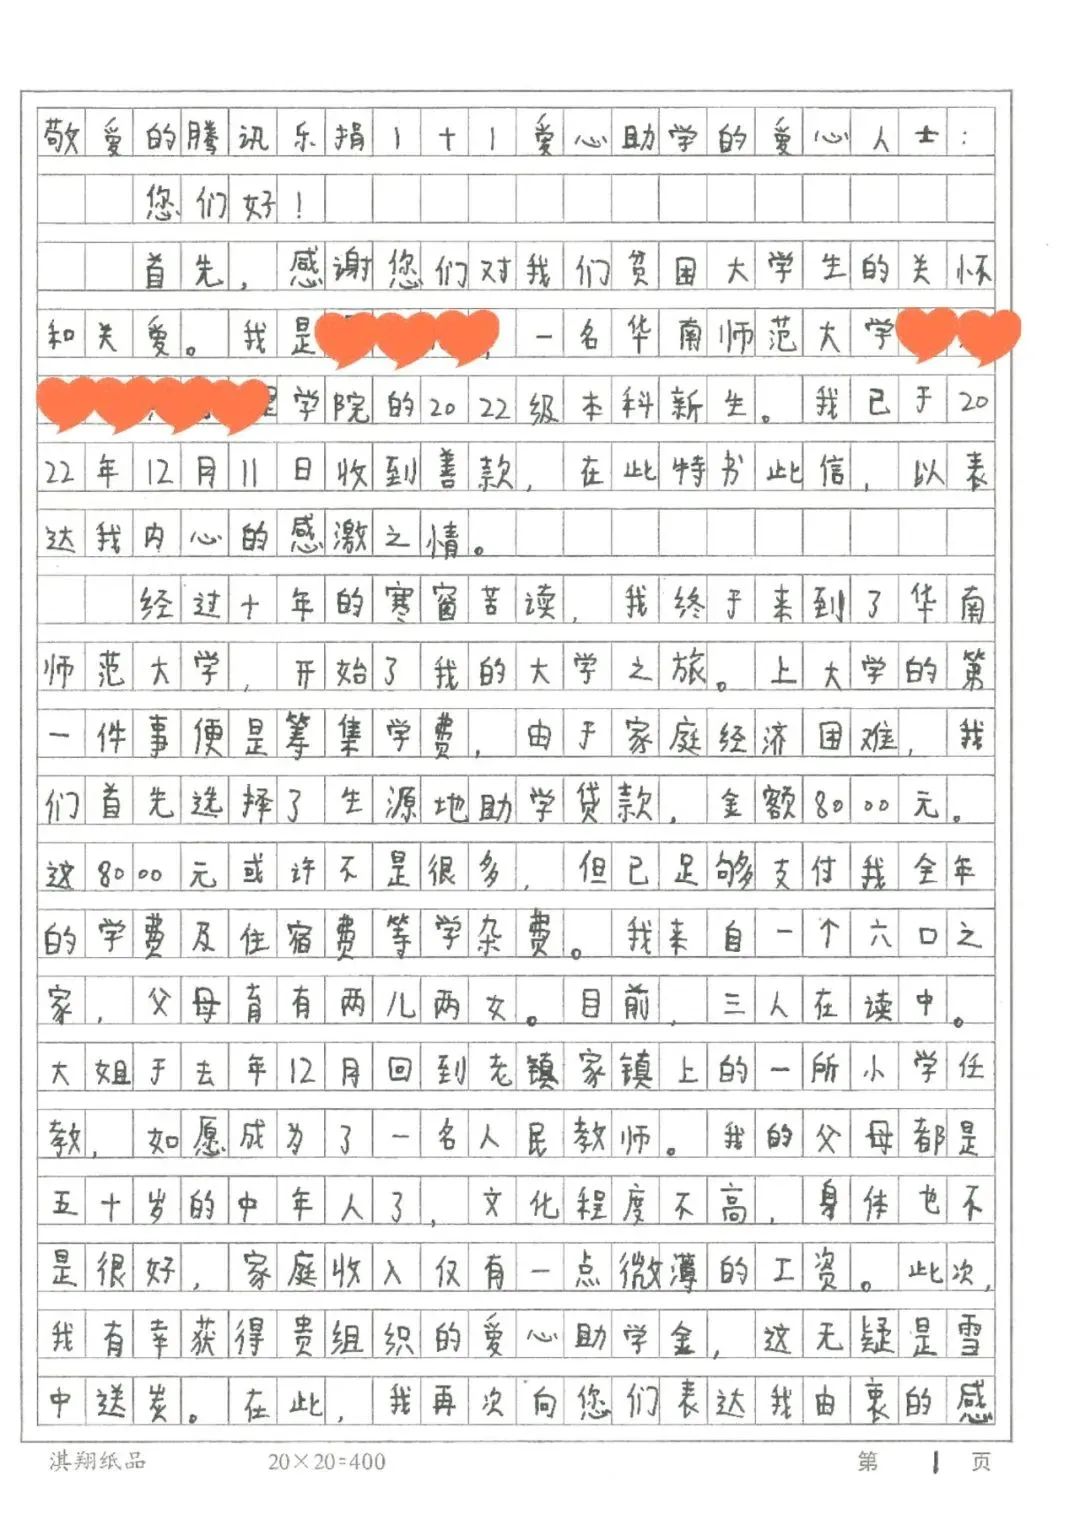 敬爱的腾讯乐捐1+1爱心助学的爱心人士:
您们好!
首先,感谢您们对我们贫困大学生的关怀
和关爱。我是,一名华南师范大学
学院的2022级本科新生。我已于20
22年12月11日收到善款,在此特书此信,以表
达我内心的感激之情。
经过十年的寒窗苦读,我终于来到了华南
师范大学,开始了我的大学之旅。上大学的第
一件事便是筹集学费,由于家庭经济困难,我
们首先选择了生源地助学贷款,金额8000元。
这8000元或许不是很多,但已足够支付我全年
的学费及住宿费等学杂费。我来自一个六口之
家,父母育有两儿两女。目前,三人在读中。
大姐于去年12月回到老镇家镇上的一所小学任
教,如愿成为了一名人民教师。我的父母都是
五十岁的中年人了,文化程度不高,身体也不
是很好,家庭收入仅有一点微薄的工资。此次,
我有幸获得贵组织的爱心助学金,这无疑是雪
中送炭。在此,我再次向您们表达我由衷的感
淇翔纸品 20×20=400 第 1 页